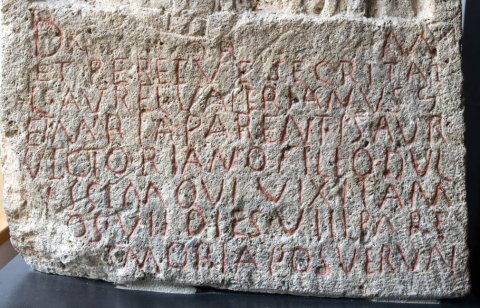 D M
ET PERPETVE SECVRITAT
L AVREL VALERIANVS
PARENTIS AVR
VICTORIANO FILIO DVL
ISSIMO QVI VIXIT AN
OS VIII DIES VIII PARE
MORIA POSVERVN